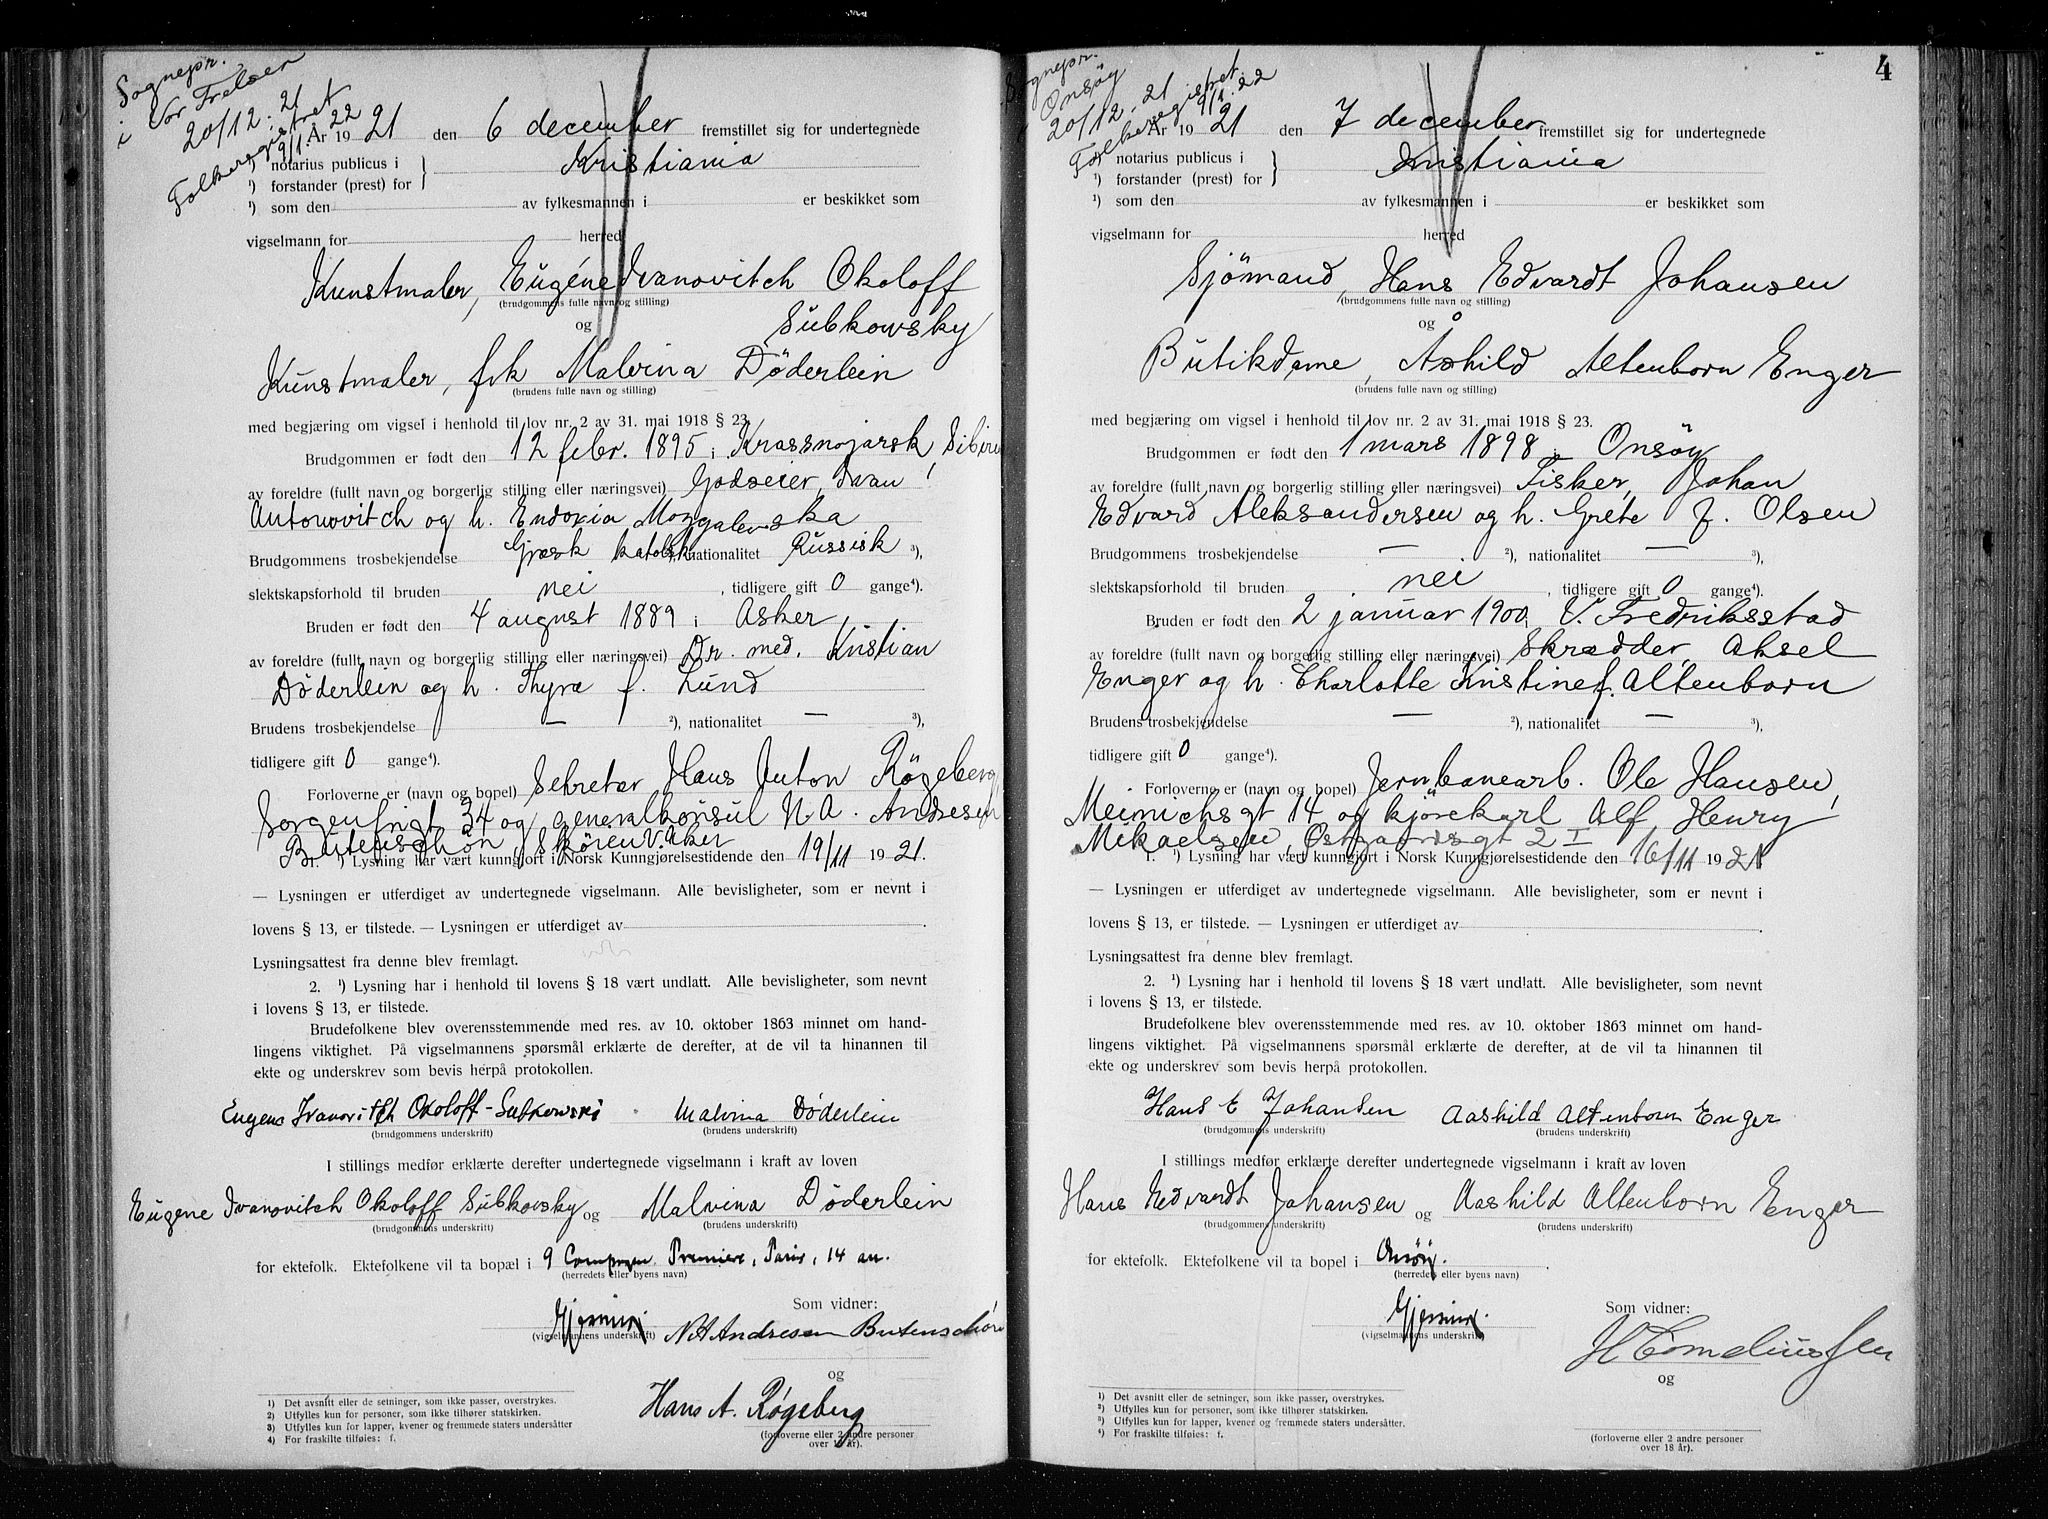 Sognepr.
i Vor Frelser
20/12.21
Folkeregistret
9/1.22
År 1921 den 6 december fremstillet sig for undertegnede
¹) notarius publicus i }
Kristiania
¹) forstander (prest) for
¹) som den av fylkesmannen i er beskikket som
vigselmann for herred
Kunstmaler, Eugéne Ivanovitch Okoloff
(brudgommens fulle navn og stilling)
og Subkowsky
Kunstmaler, frk Malvina Döderlein
(brudens fulle navn og stilling)
med begjæring om vigsel i henhold til lov nr. 2 av 31. mai 1918 § 23.
Brudgommen er født den 12 febr. 1895 i Krassnojarsk, Sibirien
av foreldre (fullt navn og borgerlig stilling eller næringsvei) Godseier, Ivan
Antonovitch og h. Endoxia Mozgalevska
Brudgommens trosbekjendelse Græsk katolsk nationalitet Russisk ³),
slektskapsforhold til bruden nei, tidligere gift 0 gange⁴).
Bruden er født den 4 august 1889 i Asker,
av foreldre (fullt navn og borgerlig stilling eller næringsvei) Dr. med. Kristian
Döderlein og h. Thyra f. Lund
Brudens trosbekjendelse — ²), nationalitet — ³),
tidligere gift 0 gange⁴).
Forloverne er (navn og bopel) Sekretær Hans Anton Røgeberg,
Sorgenfrigt 34 og generalkonsul N. A. Andresen
Butenschøn, Skøien V. Aker
1. ¹) Lysning har vært kunngjort i Norsk Kunngjørelsestidende den 19/11 1921.
— Lysningen er utferdiget av undertegnede vigselmann. Alle bevisligheter, som er nevnt i
lovens § 13, er tilstede. — Lysningen er utferdiget av .
Lysningsattest fra denne blev fremlagt.
2. ¹) Lysning har i henhold til lovens § 18 vært undlatt. Alle bevisligheter, som nevnt
i lovens § 13, er tilstede.
Brudefolkene blev overensstemmende med res. av 10. oktober 1863 minnet om hand-
lingens viktighet. På vigselmannens spørsmål erklærte de derefter, at de vil ta hinannen til
ekte og underskrev som bevis herpå protokollen.
Eugene Ivanovitch Okoloff-Subkowski Malvina Döderlein
(brudgommens underskrift) (brudens underskrift)
I stillings medfør erklærte derefter undertegnede vigselmann i kraft av loven
Eugene Ivanovitch Okoloff Subkovsky og Malvina Döderlein
(brudgommens underskrift) (brudens underskrift)
for ektefolk. Ektefolkene vil ta bopæl i 9 Campagne Première, Paris, 14 arr.
(herredets eller byens navn)
Som vidner:
N A Andresen Butenschön
(vigselmannens underskrift)
og
Hans A. Røgeberg
(forloverne eller 2 andre personer
over 18 år).
1) Det avsnitt eller de setninger, som ikke passer, overstrykes.
2) Utfylles kun for personer, som ikke tilhører statskirken.
3) Utfylles kun for lapper, kvener og fremmede staters undersåtter
4) For fraskilte tilføies: f.
4
Sognepr.
i Onsöy
20/12.21
Folkeregistret
9/1.22
År 1921 den 7 december fremstillet sig for undertegnede
¹) notarius publicus i }
Kristiania
¹) forstander (prest) for
¹) som den av fylkesmannen i er beskikket som
vigselmann for herred
Sjömand, Hans Edvardt Johansen
(brudgommens fulle navn og stilling)
og
Butikdame, Åshild Altenborn Enger
(brudens fulle navn og stilling)
med begjæring om vigsel i henhold til lov nr. 2 av 31. mai 1918 § 23.
Brudgommen er født den 1 mars 1898 i Onsöy
av foreldre (fullt navn og borgerlig stilling eller næringsvei) Fisker, Johan
Edvard Aleksandersen og h. Grete f. Olsen
Brudgommens trosbekjendelse — ²), nationalitet — ³),
slektskapsforhold til bruden nei, tidligere gift 0 gange⁴).
Bruden er født den 2 januar 1900 i V. Fredriksstad
av foreldre (fullt navn og borgerlig stilling eller næringsvei) Skrædder Aksel
Enger og h. Charlotte Kristine f. Altenborn
Brudens trosbekjendelse — ²), nationalitet — ³),
tidligere gift 0 gange⁴).
Forloverne er (navn og bopel) Jernbanearb. Ole Hansen,
Meinichsgt 14 og kjörekarl Alf Henry
Mikaelsen, Østgaardsgt 2 I
1. ¹) Lysning har vært kunngjort i Norsk Kunngjørelsestidende den 16/11 1921
— Lysningen er utferdiget av undertegnede vigselmann. Alle bevisligheter, som er nevnt i
lovens § 13, er tilstede. — Lysningen er utferdiget av .
Lysningsattest fra denne blev fremlagt.
2. ¹) Lysning har i henhold til lovens § 18 vært undlatt. Alle bevisligheter, som nevnt
i lovens § 13, er tilstede.
Brudefolkene blev overensstemmende med res. av 10. oktober 1863 minnet om hand-
lingens viktighet. På vigselmannens spørsmål erklærte de derefter, at de vil ta hinannen til
ekte og underskrev som bevis herpå protokollen.
Hans E Johansen Aashild Altenborn Enger
(brudgommens underskrift) (brudens underskrift)
I stillings medfør erklærte derefter undertegnede vigselmann i kraft av loven
Hans Edvardt Johansen og Aashild Altenborn Enger
(brudgommens underskrift) (brudens underskrift)
for ektefolk. Ektefolkene vil ta bopel i Onsöy.
(herredets eller byens navn)
Som vidner:
H Corneliussen
(vigselmannens underskrift)
og
(forloverne eller 2 andre personer
over 18 år).
1) Det avsnitt eller de setninger, som ikke passer, overstrykes.
2) Utfylles kun for personer, som ikke tilhører statskirken.
3) Utfylles kun for lapper, kvener og fremmede staters undersåtter.
4) For fraskilte tilføies: f.